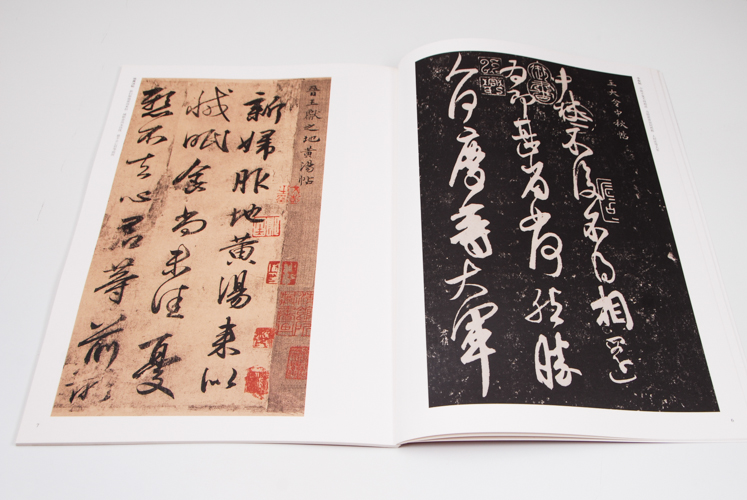 王大令中秋帖
中秋不復不得相還
為即甚省如何然勝
人何慶等大軍
晉王獻之地黃湯帖
新婦服地黃湯來似
減眠食尚未佳憂
懸不去心君等前所